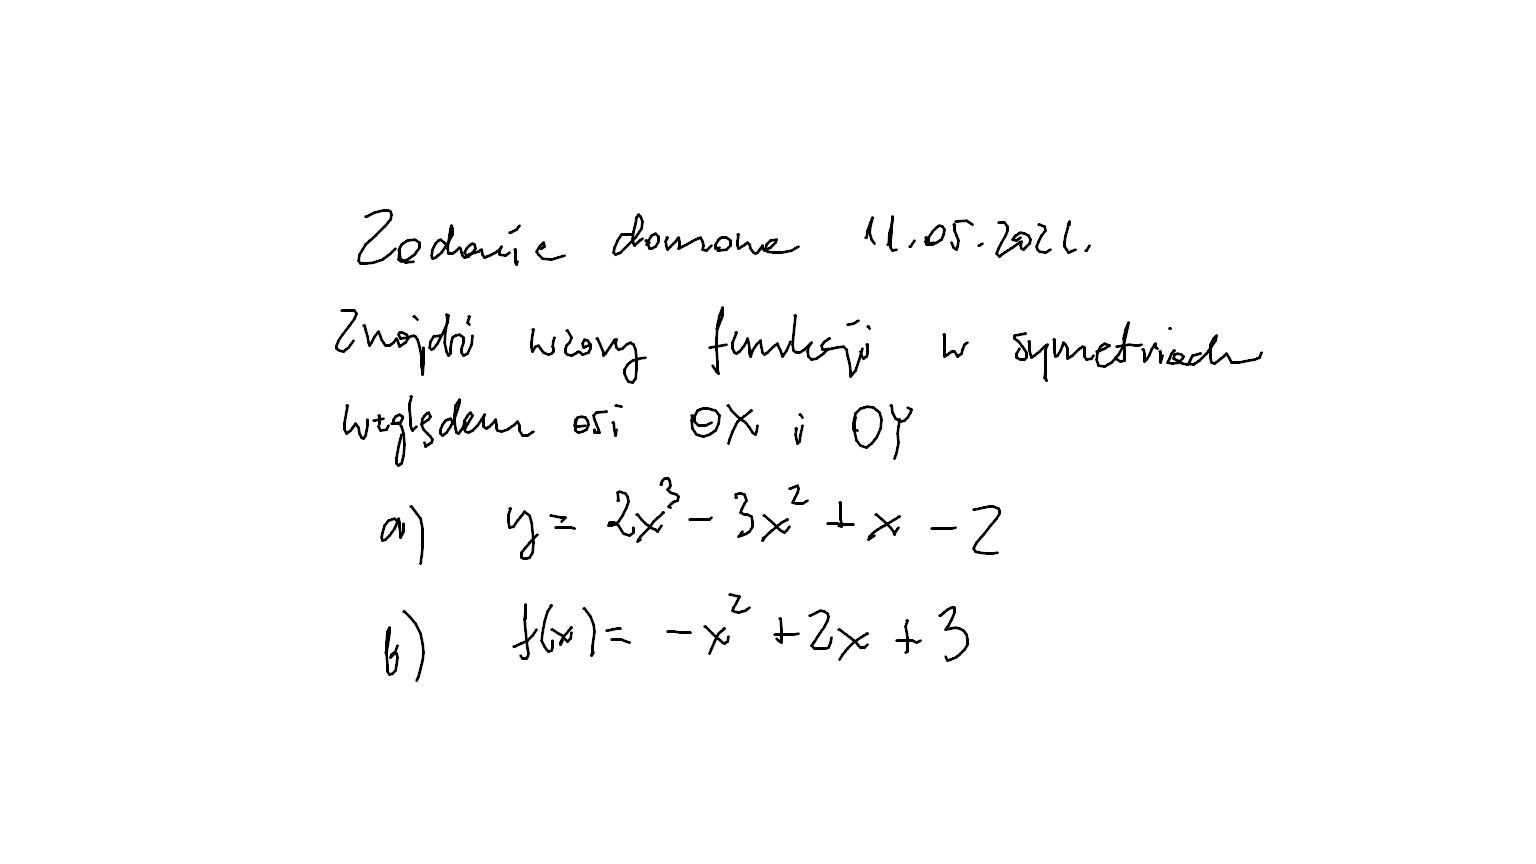 Zadanie domowe 11.05.2021.
Znajdź wzory funkcji w symetriach
względem osi OX i OY
a) y = 2x³ - 3x² + x - 2
b) f(x) = -x² + 2x + 3